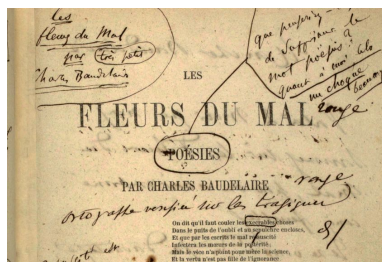 les
fleurs du Mal
par très petit
Charles Baudelaire
que
de supprimer le
mot poésies ?
quant à moi
me choque
beaucoup
LES
FLEURS DU MAL
rouge
POÉSIES
PAR CHARLES BAUDELAIRE
rouge
ortografe vérifiée sur les
On dit qu'il faut couler les exécrables choses
Dans le puits de l'oubli et au sépulchre encloses,
Et que par les escrits le mal
Infectera les mœurs de la postérité;
Mais le vice n'a point pour mère la science,
Et la vertu n'est pas fille de l'ignorance.